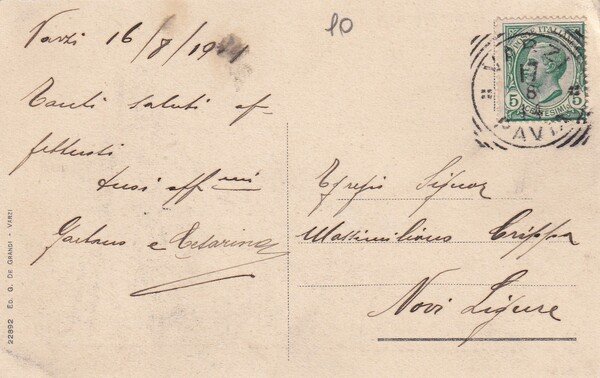 Varzi 16/8/1911
Tanti saluti af-
fettuosi
suoi aff mi
Gaetano e Cesarina
10
POSTE ITALIANE
5 CENTESIMI 5
VARZI
PAVIA
Egregio Signor
Massimiliano Crippa
Novi Ligure
22892 ED. G. DE GRANDI - VARZI